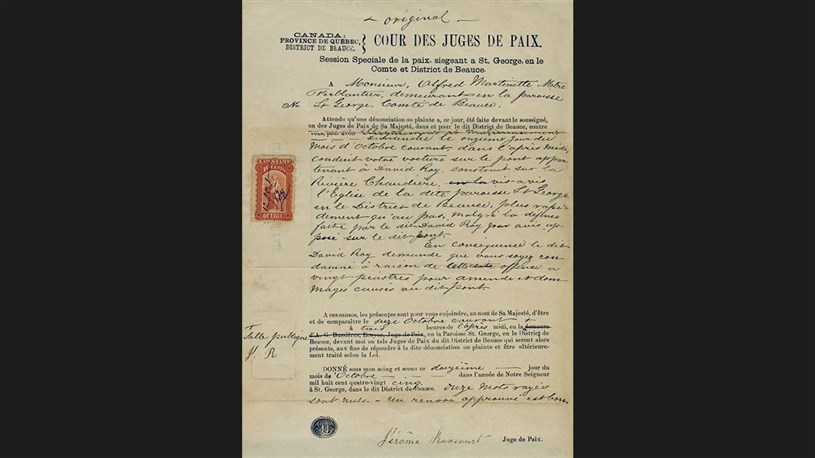 original
CANADA:
PROVINCE DE QUÉBEC,
DISTRICT DE BEAUCE.
COUR DES JUGES DE PAIX.
Session Speciale de la paix, siegeant a St. George, en le
Comte et District de Beauce.
A Monsieur, Alfred Martinette Mtre
Ferblantier, demeurant en la paroisse
No St George, Comté de Beauce.
Attendu qu'une dénonciation ou plainte a, ce jour, été faite devant le soussigné,
un des Juges de Paix de Sa Majesté, dans et pour le dit District de Beauce, contre
vous, pour avoir
dimanche le onzième jour du
Mois d'Octobre courant, dans l'après Midi,
conduit votre voiture sur le pont appar
tenant à David Roy, construit sur la
Rivière Chaudière, en la vis a vis
l'Eglise de la dite paroisse St George
en le District de Beauce, plus rapi-
dement qu'au pas, malgré la défense
faite par le dit David Roy par avis ap-
posé sur le dit pont.
En conséquence le dit
David Roy demande que vous soyez con-
damné à raison de cette offense a
vingt piastres pour amende et dom
mages causés au dit pont.
LAW STAMP
QUEBEC
A ces causes, les présentes sont pour vous enjoindre, au nom de Sa Majesté, d'être
et de comparaître le onze Octobre courant
à trois heures de l'après midi, en la demeure
Salle publique
d'A. G. Bussières, Ecuyer, Juge de Paix, en la Paroisse St. George, en le District de
Beauce, devant moi ou tels Juges de Paix du dit District de Beauce qui seront alors
J. R
présents, aux fins de répondre à la dite dénonciation ou plainte et être ultérieure-
ment traité selon la Loi.
DONNÉ sous mon seing et sceau ce douzième jour du
mois d'Octobre dans l'année de Notre Seigneur
mil huit cent quatre-vingt cinq
à St. George, dans le dit District de Beauce. Onze mots rayés
sont nuls - Un renvoi approuvé est bon
Jérôme Juge de Paix.